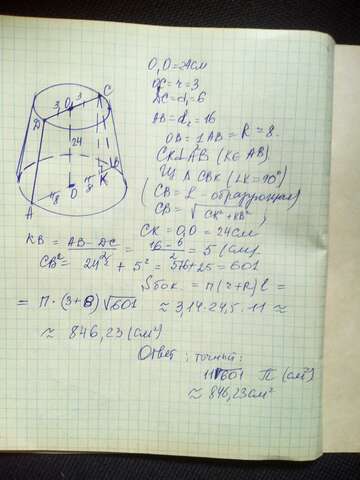 O₁O = 24 см
DC = r = 3
DC = d₁ = 6
AB = d₂ = 16
OB = ½ AB = R = 8.
CK ⊥ AB (K ∈ AB).
Из Δ CBK (∠K = 90°)
(CB = L - образующая)
CB = √CK² + KB²,
CK = O₁O = 24 см
KB = AB - DC / 2 = 16 - 6 / 2 = 5 (см).
CB² = 24² + 5² = 576 + 25 = 601
Sбок = π (r + R) l =
= π · (3 + 8) √601 ≈ 3,14 · 24,5 · 11 ≈
≈ 846,23 (см²)
Ответ: точный:
11√601 π (см²)
≈ 846,23 см²
C
3
O₁
3
D
24
B
8
O
8
K
A